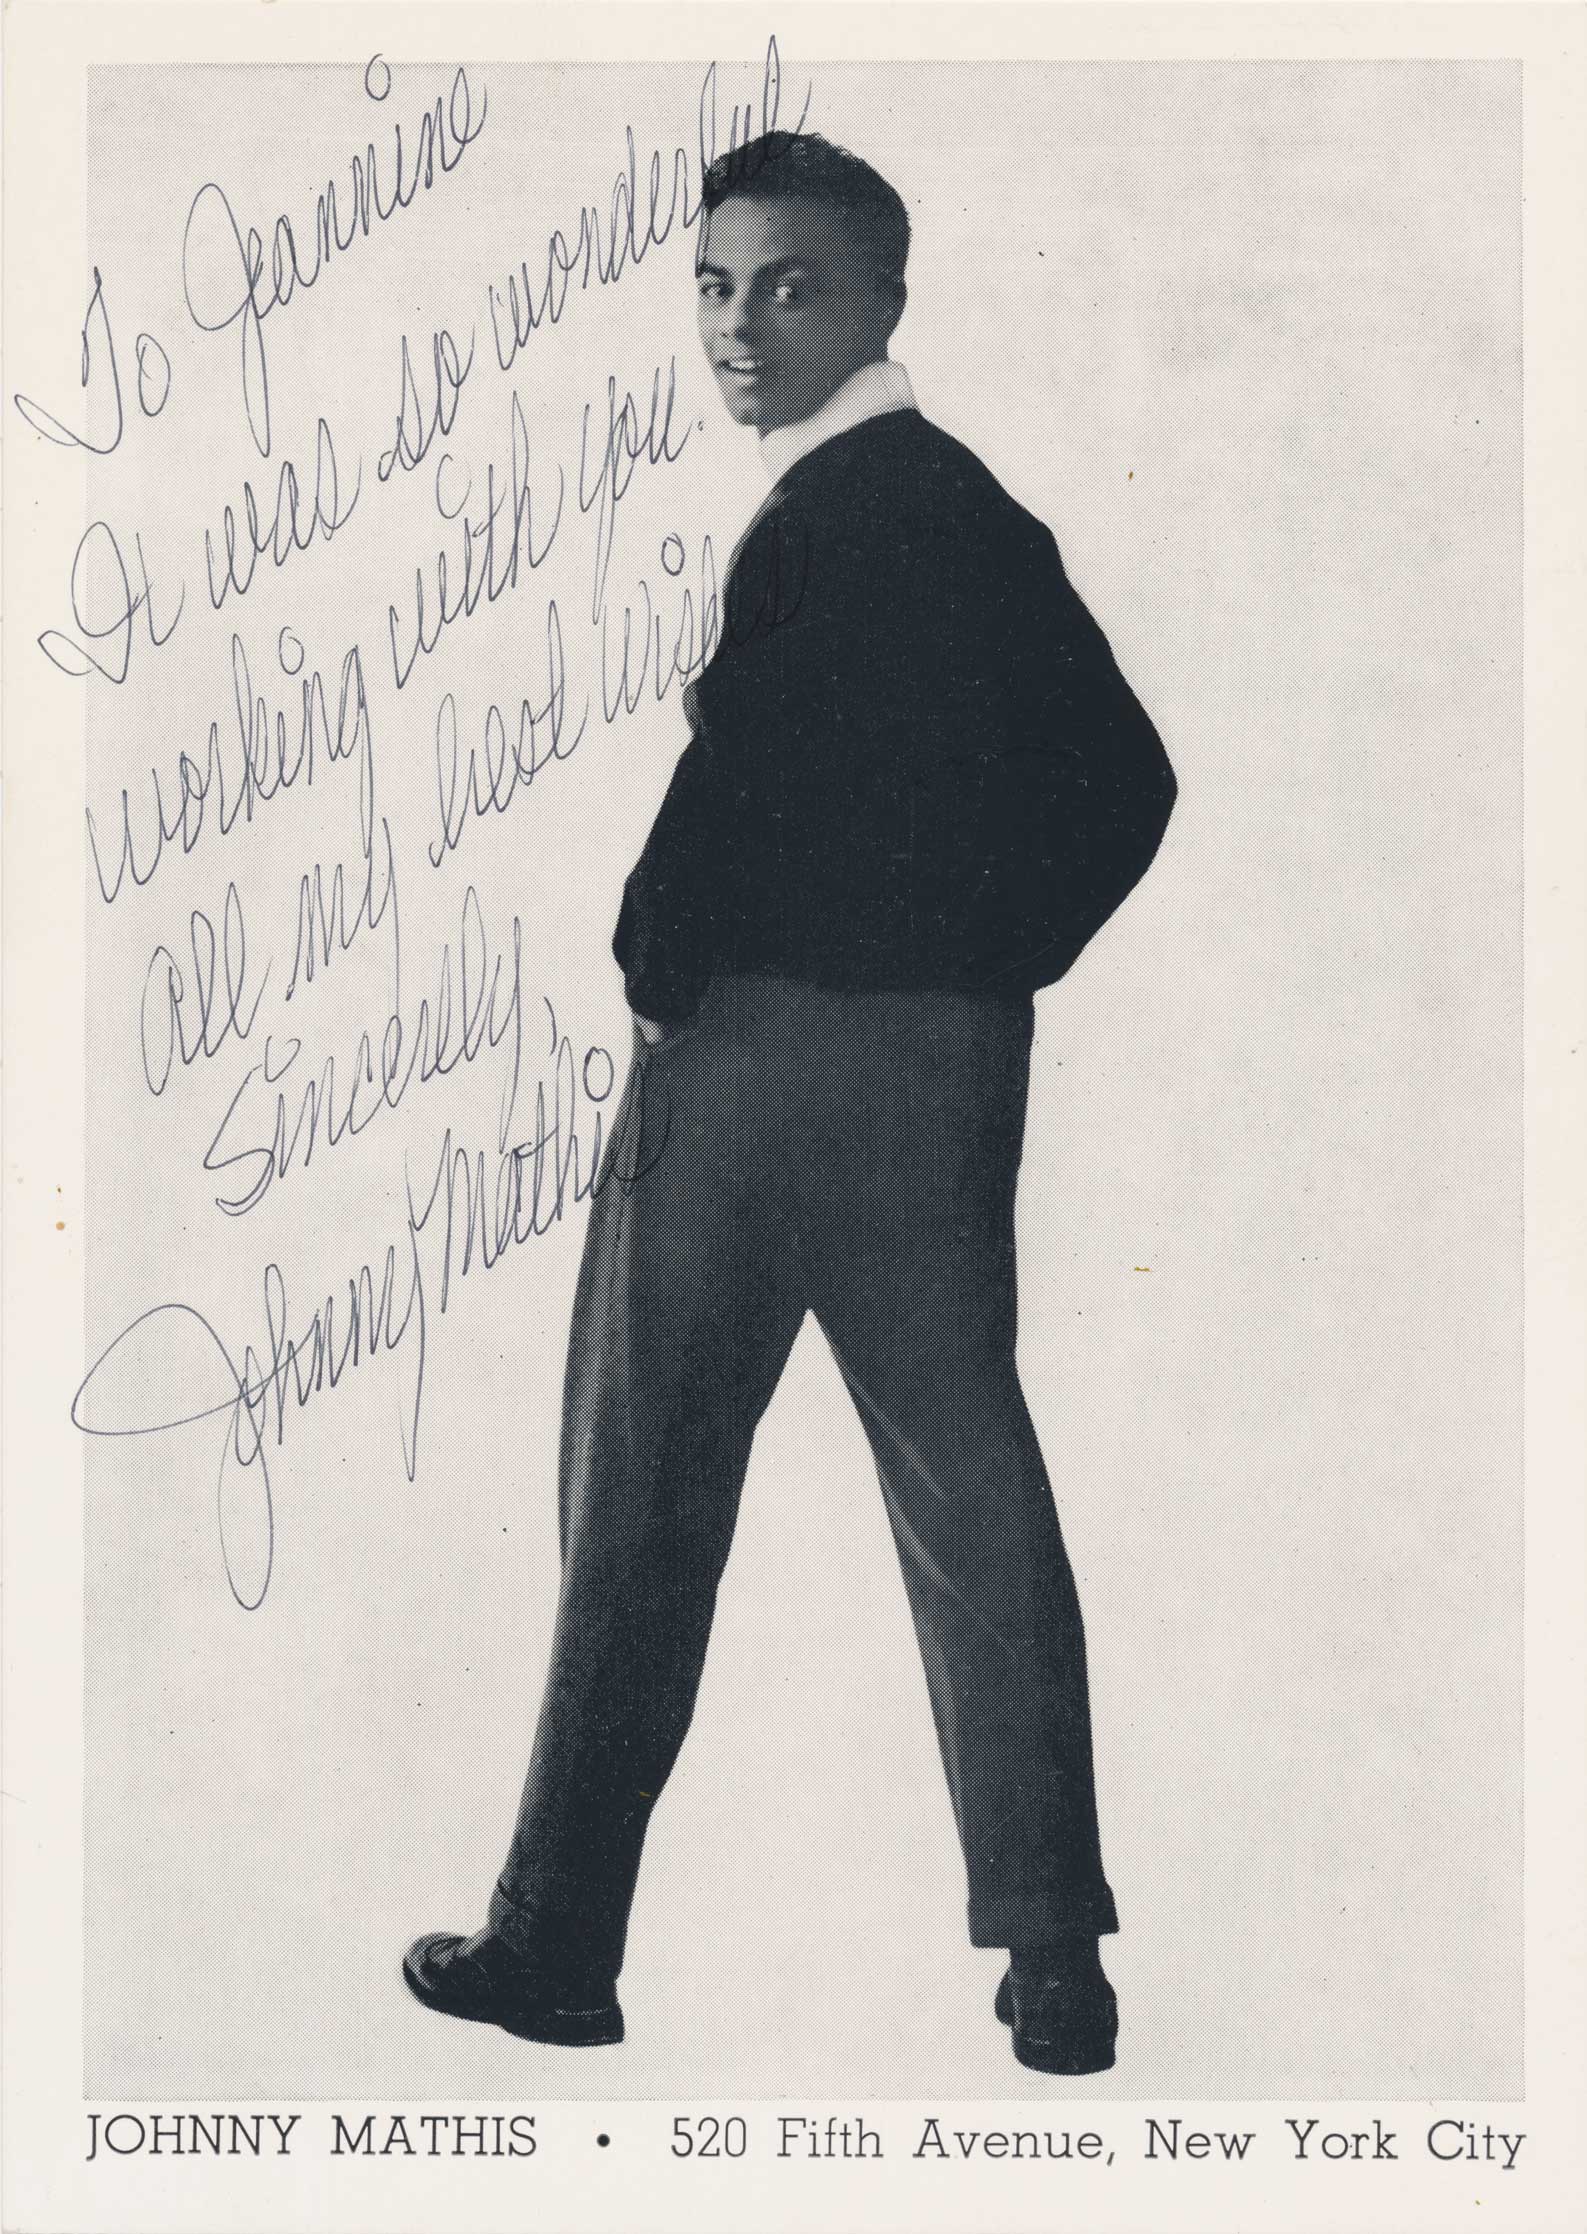 To Jeannine
It was so wonderful
working with you.
all my best wishes
Sincerely,
Johnny Mathis
JOHNNY MATHIS • 520 Fifth Avenue, New York City